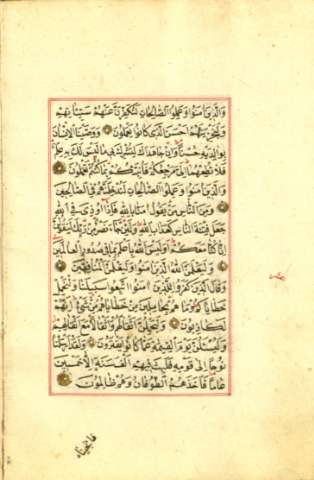 وَالَّذِينَ اٰمَنُوا وَعَمِلُوا الصَّالِحَاتِ لَنُكَفِّرَنَّ عَنْهُمْ سَيِّئَاتِهِمْ
وَلَنَجْزِيَنَّهُمْ اَحْسَنَ الَّذِى كَانُوا يَعْمَلُونَ وَوَصَّيْنَا الْاِنْسَانَ
بِوَالِدَيْهِ حُسْنًا وَاِنْ جَاهَدَاكَ لِتُشْرِكَ بِى مَا لَيْسَ لَكَ بِهِ عِلْمٌ
فَلَا تُطِعْهُمَا اِلَىَّ مَرْجِعُكُمْ فَاُنَبِّئُكُمْ بِمَا كُنْتُمْ تَعْمَلُونَ
وَالَّذِينَ اٰمَنُوا وَعَمِلُوا الصَّالِحَاتِ لَنُدْخِلَنَّهُمْ فِى الصَّالِحِينَ
وَمِنَ النَّاسِ مَنْ يَقُولُ اٰمَنَّا بِاللّٰهِ فَاِذَا اُوذِىَ فِى اللّٰهِ
جَعَلَ فِتْنَةَ النَّاسِ كَعَذَابِ اللّٰهِ وَلَئِنْ جَاءَ نَصْرٌ مِنْ رَبِّكَ لَيَقُولُنَّ
اِنَّا كُنَّا مَعَكُمْ اَوَلَيْسَ اللّٰهُ بِاَعْلَمَ بِمَا فِى صُدُورِ الْعَالَمِينَ
وَلَيَعْلَمَنَّ اللّٰهُ الَّذِينَ اٰمَنُوا وَلَيَعْلَمَنَّ الْمُنَافِقِينَ
وَقَالَ الَّذِينَ كَفَرُوا لِلَّذِينَ اٰمَنُوا اتَّبِعُوا سَبِيلَنَا وَلْنَحْمِلْ
خَطَايَاكُمْ وَمَا هُمْ بِحَامِلِينَ مِنْ خَطَايَاهُمْ مِنْ شَىْءٍ اِنَّهُمْ
لَكَاذِبُونَ وَلَيَحْمِلُنَّ اَثْقَالَهُمْ وَاَثْقَالًا مَعَ اَثْقَالِهِمْ
وَلَيُسْئَلُنَّ يَوْمَ الْقِيٰمَةِ عَمَّا كَانُوا يَفْتَرُونَ وَلَقَدْ اَرْسَلْنَا
نُوحًا اِلَى قَوْمِهِ فَلَبِثَ فِيهِمْ اَلْفَ سَنَةٍ اِلَّا خَمْسِينَ
عَامًا فَاَخَذَهُمُ الطُّوفَانُ وَهُمْ ظَالِمُونَ
فانجيناه